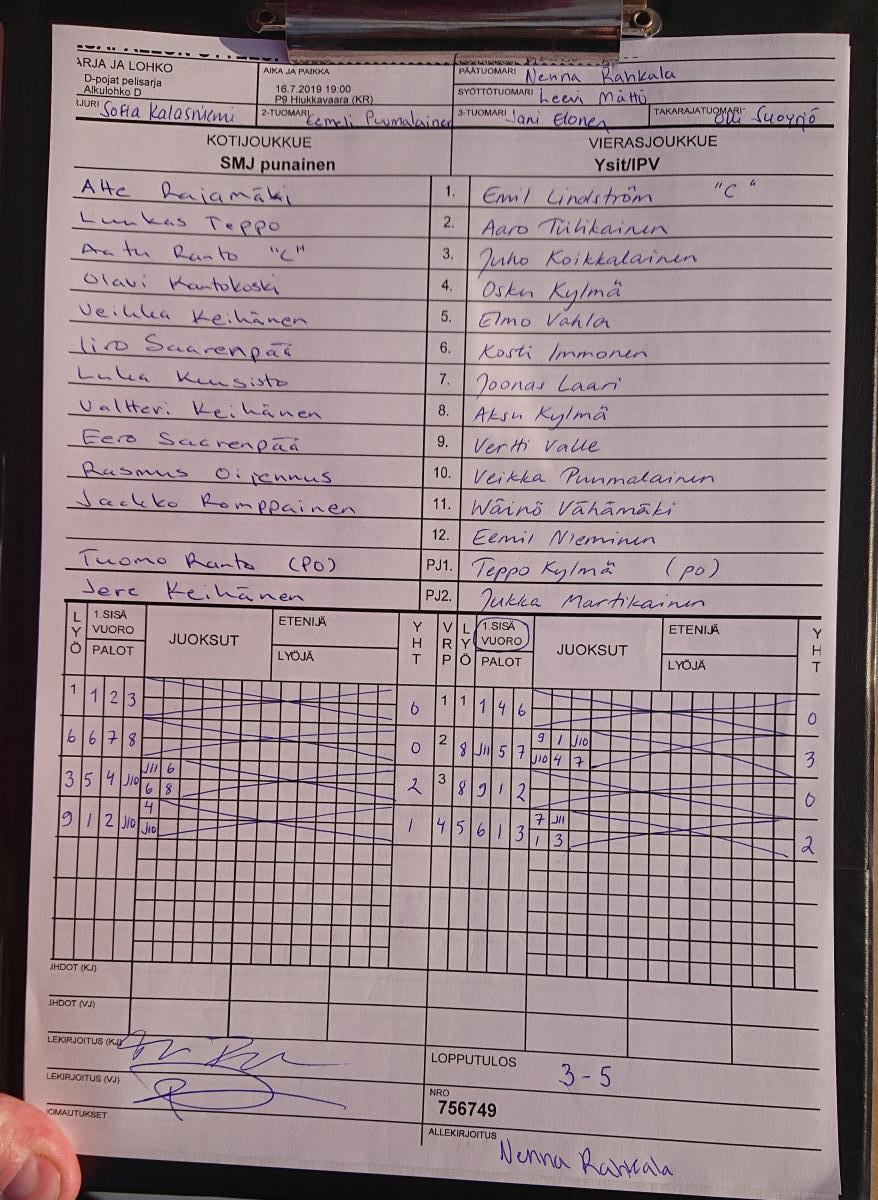 ARJA JA LOHKO
D-pojat pelisarja
Alkulohko D
AIKA JA PAIKKA
16.7.2019 19:00
P9 Hiukkavaara (KR)
PÄÄTUOMARI Nenna Rahkala
SYÖTTÖTUOMARI Leevi Mättö
RJURI Sofia Kalasniemi
2-TUOMARI Eemeli Puumalainen
3-TUOMARI Jani Elonen
TAKARAJATUOMARI Olli
KOTIJOUKKUE VIERASJOUKKUE
SMJ punainen Ysit/IPV
Atte Rajamäki 1. Emil Lindström "C"
Luukas Teppo 2. Aaro Tiilikainen
Aatu Ranto "C" 3. Juho Koikkalainen
Olavi Kantokoski 4. Osku Kylmä
Veikka Keihänen 5. Elmo Vahla
Iiro Saarenpää 6. Kosti Immonen
Luka Kuusisto 7. Joonas Laari
Valtteri Keihänen 8. Aksu Kylmä
Eero Saarenpää 9. Vertti Valle
Rasmus Oijennus 10. Veikka Puumalainen
Jaakko Romppainen 11. Wäinö Vähämäki
12. Eemil Nieminen
Tuomo Ranto (PO) PJ1. Teppo Kylmä (PO)
Jere Keihänen PJ2. Jukka Martikainen
LYÖ 1.SISÄ VUORO PALOT JUOKSUT ETENIJÄ LYÖJÄ YHT VRP LYÖ 1.SISÄ VUORO PALOT JUOKSUT ETENIJÄ LYÖJÄ YHT
1 1 2 3 0 1 1 1 4 6 0
6 6 7 8 0 2 8 J11 5 7 9 1 J10 3
J10 4 7
3 5 4 J10 J11 6 2 3 8 9 1 2 0
6 8
9 1 2 J10 4 1 4 5 6 1 3 7 J11 2
J10 1 3
JHDOT (KJ)
JHDOT (VJ)
LEKIRJOITUS (KJ)
LEKIRJOITUS (VJ)
OMAUTUKSET
LOPPUTULOS 3-5
NRO
756749
ALLEKIRJOITUS
Nenna Rahkala